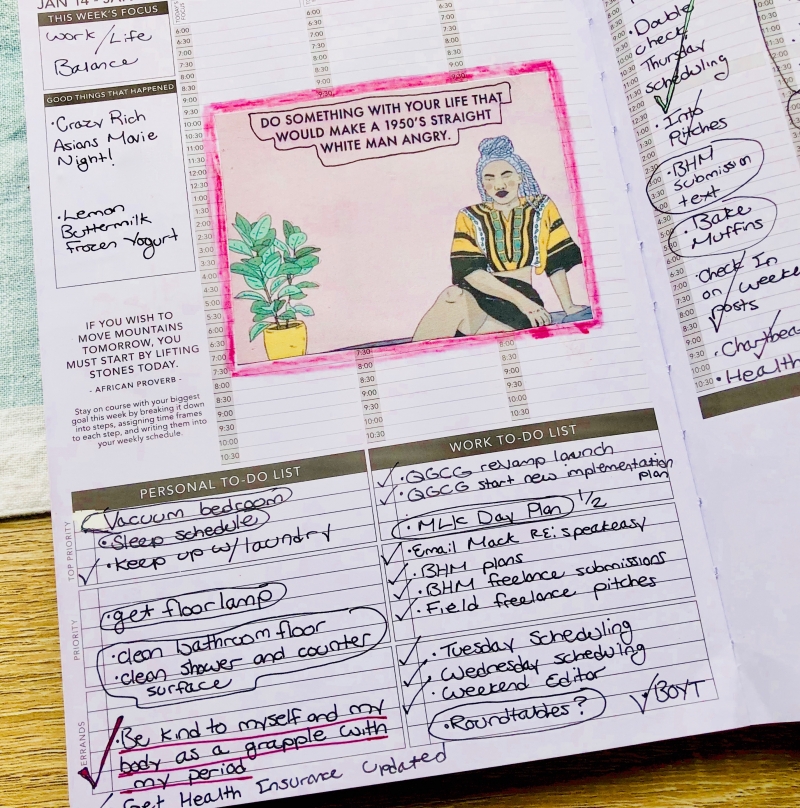 JAN 14 -
THIS WEEK'S FOCUS
Work / Life
Balance
GOOD THINGS THAT HAPPENED
• Crazy Rich
Asians Movie
Night!
• Lemon
Buttermilk
Frozen Yogurt
IF YOU WISH TO
MOVE MOUNTAINS
TOMORROW, YOU
MUST START BY LIFTING
STONES TODAY.
- AFRICAN PROVERB -
Stay on course with your biggest
goal this week by breaking it down
into steps, assigning time frames
to each step, and writing them into
your weekly schedule.
DO SOMETHING WITH YOUR LIFE THAT
WOULD MAKE A 1950'S STRAIGHT
WHITE MAN ANGRY.
6:00
6:30
7:00
7:30
8:00
8:30
9:00
9:30
10:00
10:30
11:00
11:30
12:00
12:30
1:00
1:30
2:00
2:30
3:00
3:30
4:00
4:30
5:00
5:30
6:00
6:30
7:00
7:30
8:00
8:30
9:00
9:30
10:00
10:30
7:30
8:00
8:30
9:00
9:30
10:00
10:30
8:00
8:30
9:00
9:30
10:00
10:30
PERSONAL TO-DO LIST
TOP PRIORITY
Vacuum bedroom
• Sleep schedule
• Keep up w/ laundry
PRIORITY
• get floor lamp
• clean bathroom floor
• clean shower and counter
surface
ERRANDS
• Be kind to myself and my
body as a grapple with
my period
Get Health Insurance Updated
WORK TO-DO LIST
• QGCG revamp launch
• QGCG start new implementation
plan
• MLK Day Plan 1/2
• Email Mack RE: speakeasy
• BHM plans
• BHM freelance submissions
• Field freelance pitches
• Tuesday Scheduling
• Wednesday scheduling
• Weekend Editor
• Roundtables?
BOYT
• Double
check
Thursday
scheduling
• Into
Pitches
• BHM
submission
text
• Bake
Muffins
• Check In
on weeke
posts
• Chartbea
• Health